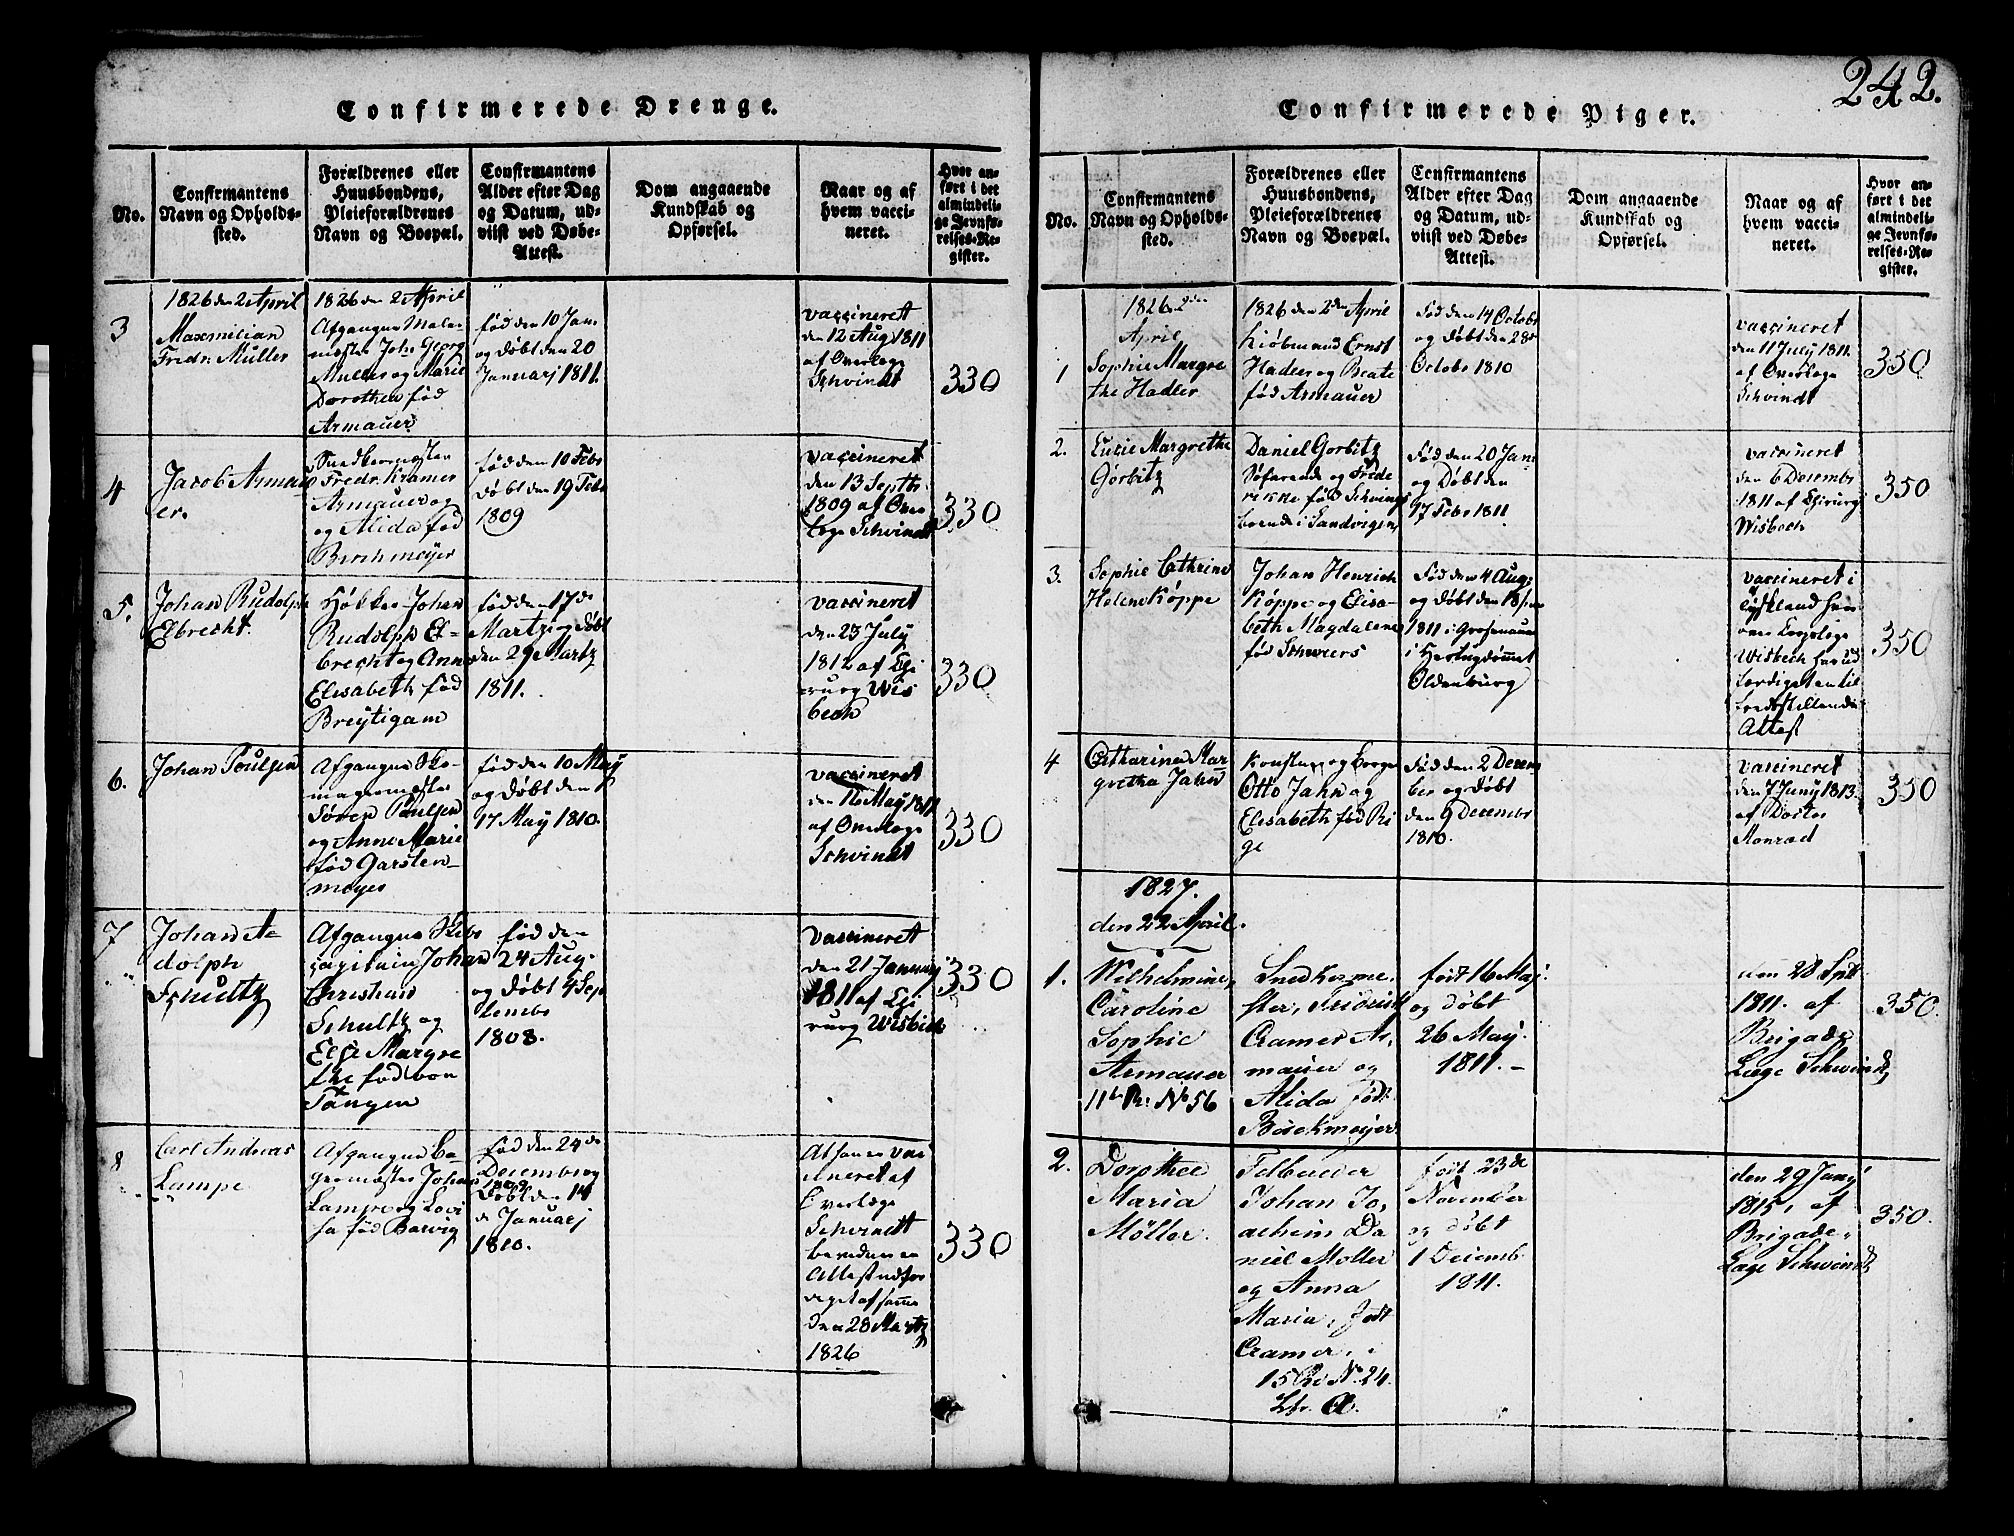 242.
Confirmerede Drenge.
No.
Confirmantens
Navn og Opholds-
sted.
Forældrenes eller
Huusbondens,
Pleieforældrenes
Navn og Boepæl.
Confirmantens
Alder efter Dag
og Datum, ud-
viist ved Døbe-
Attest.
Dom angaaende
Kundskab og
Opførsel.
Naar og af
hvem vacci-
neret.
Hvor an-
ført i det
almindeli-
ge Jevnfø-
relses-Re-
gister.
3
1826 den 2 April
Maxmilian
Fredr. Müller
1826 den 2 April
Afgangne Maler
mester Joh. Georg
Müller og Marie
Dorothea fød
Armauer
fød den 10 Jan.
og døbt den 20
Januarj 1811.
vaccineret
den 12 Aug 1811
af Overlæge
Schvindt
330
4
Jacob Armau
er.
Snedkermester
Fredr. Kramer
Armauer og
og Alida fød
Berchmeyer
fød den 10 Febr
døbt den 19 Febr
1809
vaccineret
den 13 Septbr.
1809 af Over
læge Schvindt
330
5.
Johan Rudolph
Elbrecht.
Høkker Johan
Rudolph El-
brecht og Anne
Elisabeth fød
Breytigam
fød den 17 de
Martzi og døbt
den 29 Martz
1811.
vaccineret
den 23 July
1812 af Chi
rurg Wis
bech
330
6.
Johan Poulsen
Afgangne Sko-
magermester
Søren Poulsen
og Anne Marie
fød Garsten-
meyer
fød den 10 May
og døbt den
17 May 1810.
vaccineret
den 16 May 1811
af Overlæge
Schvindt
330
7
Johan A-
dolph
Schultz
Afgangne Skibs
capitain Johan
Christian
Schultz og
Else Margre
the fød von
Tangen
fød den
24 Aug.
og døbt 4 Sep
tembr
1808.
vaccineret
den 21 Januarj
1811 af Chi
rurg Wisbech
330
8
Carl Andreas
Lampe
Afgangne Ba-
germester Johan
Lampe og Lovi
sa fød Barvig
fød den 24 de
Decembr og
1809
døbt den 14
de Januarj
1810.
At han er vac
cineret af
Overlæge
Schvindt
bevidner en
Attest udfær
diget af samme
den 28 Martz
1826
330
Confirmerede Piger.
No.
Confirmantens
Navn og Opholds-
sted.
Forældrenes eller
Huusbondens,
Pleieforældrenes
Navn og Boepæl.
Confirmantens
Alder efter Dag
og Datum, ud-
viist ved Døbe-
Attest.
Dom angaaende
Kundskab og
Opførsel.
Naar og af
hvem vacci-
neret.
Hvor an-
ført i det
almindeli-
ge Jevnfø-
relses-Re-
gister.
1
1826 2den
April
Sophie Margre
the Hadler
1826 den 2den April
Kiøbmand Ernst
Hadler og Beate
fød Armauer
Fød den 14 Octobr
og døbt den 28de
Octobr 1810
vaccineret
den 11 July 1811.
af Overlæge
Schvindt
350
2.
Lucie Margrethe
Görbitz
Daniel Gorbitz
Søfarende og Frede
rikke fød Schving
boende i Sandvigen
Fød den 20 Jan.
og Døbt den
17 Febr 1811.
vaccineret
den 6 Decembr
1811 af Chirurg
Wisbech
350
3.
Sophie Cathrine
Helene Köppe
Johan Henrich
Köppe og Elisa-
beth Magdalene
fød Schweers
Fød den 4 Aug:
og døbt den 18
1811 i
i Hertugdømmet
Oldenburg
vaccineret i
Tyskland
Wisbech har ud
færdiget en til
fredsstillende
Attest
350
4
Catharina Mar
gretha Jahn
Otto Jahn og
Elisabeth fød Ri
ge
Fød den 2 Decem
ber og døbt
den 9 Decembr
1810.
vaccineret
den 7 Juny 1813.
af Doctor
Konrad
350
1827.
den 22 April.
1.
Wilhelmine
Caroline
Sophie
Armauer
11te R: No 56
Snedkerme-
ster, Fridrich
Cramer Ar-
mauer og
Alida født
Böekmeijer
født 16 Maj
og døbt
26 Maj.
1811. -
den 28 Sept
1811. af
Brigade
Læge Schwindt
350.
2.
Dorothee
Maria
Möller.
Feldbereder
Johan Jo-
achim Da
niel Möller
og Anna
Maria, født
Cramer, i
15 Rd No 24.
Ltr. A.
født 23de
November
og døbt
1 Decemb.
1811.
den 29 Junj
1815, af
Brigade-
Læge Schwindt
350.